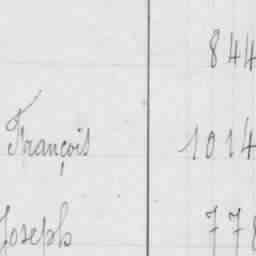 844
François 1014
Joseph 778